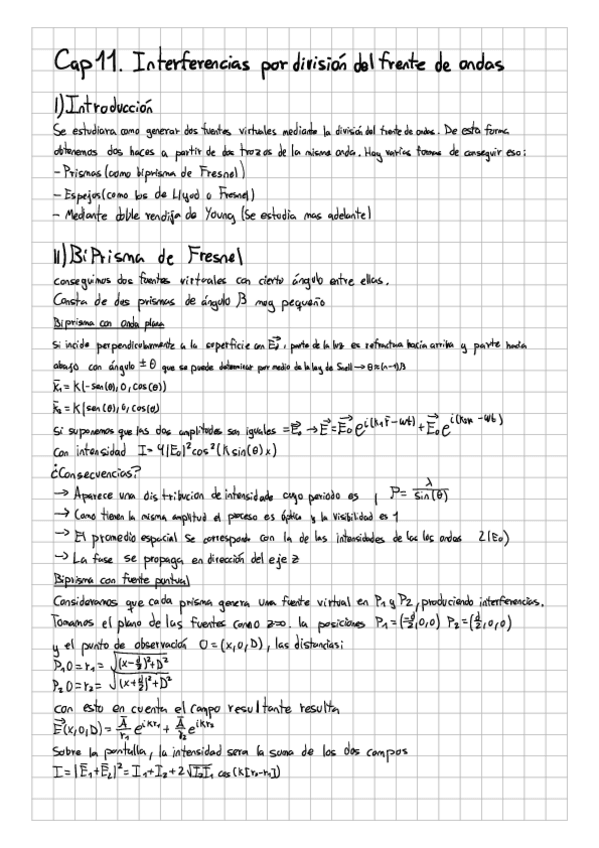 Cap 11. Interferencias por división del frente de ondas
I) Introducción
Se estudiara como generar dos fuentes virtuales mediante la división del frente de ondas. De esta forma
obtenemos dos haces a partir de dos trozos de la misma onda. Hay varias formas de conseguir eso:
- Prismas (como biprisma de Fresnel)
- Espejos (como los de Lloyd o Fresnel)
- Mediante doble rendija de Young (Se estudia mas adelante)
II) BiPrisma de Fresnel
conseguimos dos fuentes virtuales con cierto ángulo entre ellas.
Consta de dos prismas de ángulo β muy pequeño
Biprisma con onda plana
Si incide perpendicularmente a la superficie con E₀, parte de la luz es refractua hacia arriba y parte hacia
abajo con ángulo ± θ que se puede determinar por medio de la ley de Snell → θ≈(n-1)β
k̄₁ = K(-sen(θ), 0, cos(θ))
k̄₂ = K(sen(θ), 0, cos(θ)
Si suponemos que las dos amplitudes son iguales = E₀ → E = E₀ e^i(k₁r̄ - ωt) + E₀ e^i(k₂r - ωt)
Con intensidad I = 4|E₀|² cos²(K sin(θ) x)
¿Consecuencias?
→ Aparece una distribucion de intensidade cuyo periodo es , P = λ / sin(θ)
→ Como tienen la misma amplitud el proceso es óptico y la visibilidad es 1
→ El promedio espacial se corresponde con la de las intensidades de las los ondas 2|E₀)
→ La fase se propaga en dirección del eje z
Biprisma con fuente puntual
Consideramos que cada prisma genera una fuente virtual en P₁ y P₂, produciendo interferencias.
Tomamos el plano de las fuentes como z=0. la posiciones P₁ = (-d/2, 0, 0) P₂ = (d/2, 0, 0)
y el punto de observación O = (x, 0, D), las distancias:
P₁O = r₁ = √(x - d/2)² + D²
P₂O = r₂ = √(x + d/2)² + D²
con esto en cuenta el campo resultante resulta
E(x, 0, D) = Ā/r₁ e^ikr₁ + Ā/r₂ e^ikr₂
Sobre la pantalla, la intensidad sera la suma de los dos campos
I = |Ē₁ + Ē₂|² = I₁ + I₂ + 2√I₂I₁ cos(k[r₂ - r₁])